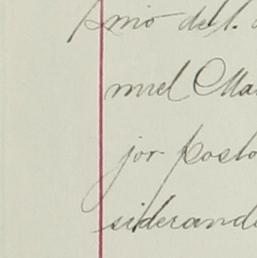 pmo del.
nuel Ma
jor posto
siderand